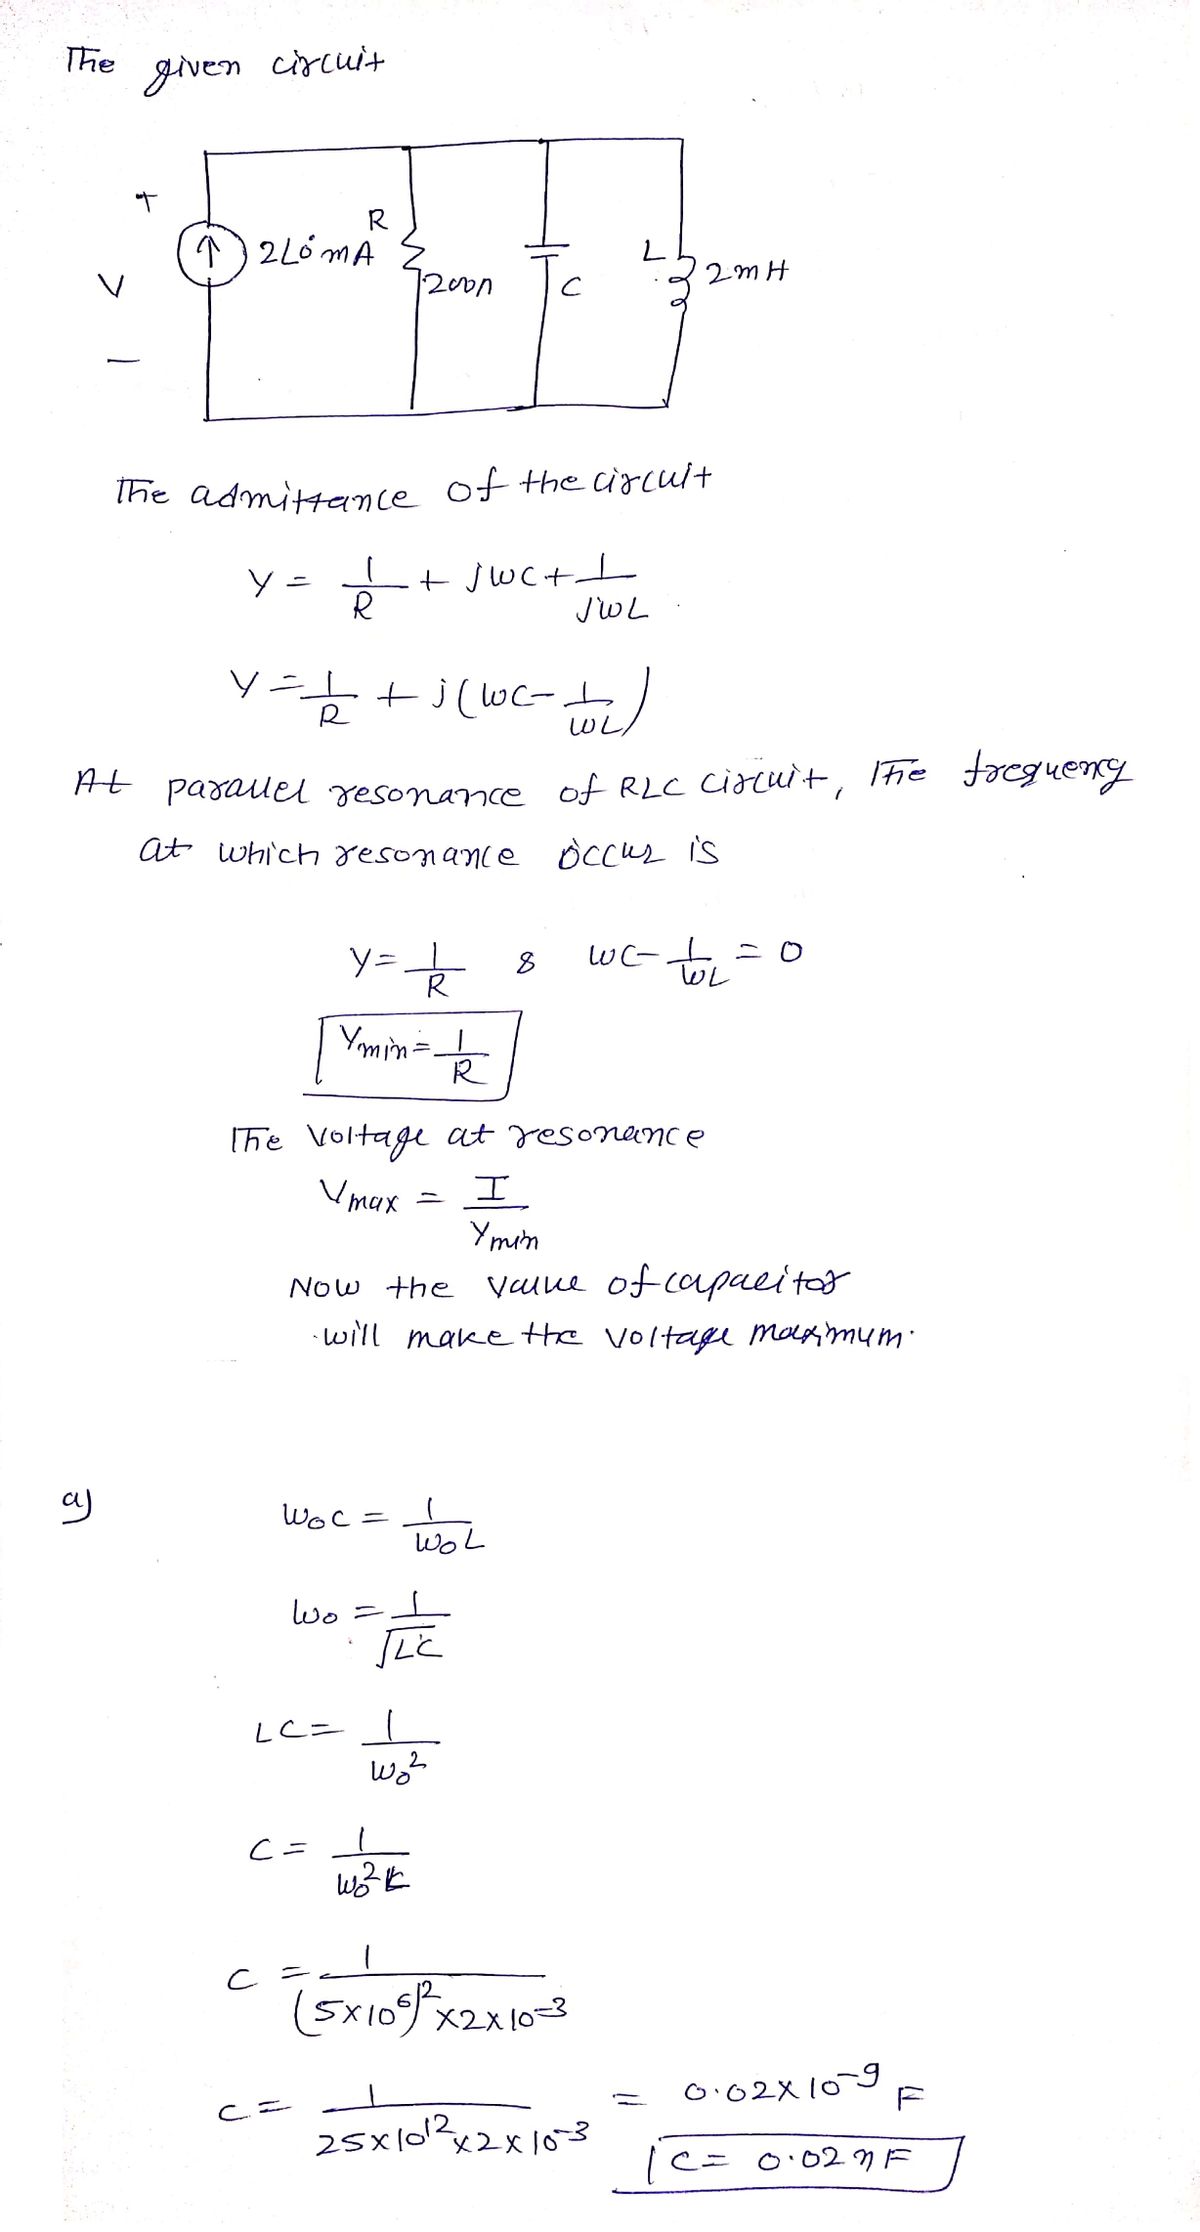 The given circuit
+
V
-
2∠0° mA
R
200Ω
C
L
2mH
The admittance of the circuit
Y = 1/R + jωC + 1/jωL
Y = 1/R + j(ωC - 1/ωL)
At parallel resonance of RLC circuit, The frequency
at which resonance occur is
Y = 1/R & ωC - 1/ωL = 0
Ymin = 1/R
The Voltage at resonance
Vmax = I/Ymin
Now the value of capacitor
will make the voltage maximum.
a)
ω₀C = 1/ω₀L
ω₀ = 1/√LC
LC = 1/ω₀²
C = 1/ω₀²L
C = 1/(5×10⁶)²×2×10⁻³
C = 1/25×10¹²×2×10⁻³ = 0.02×10⁻⁹ F
C = 0.02 nF